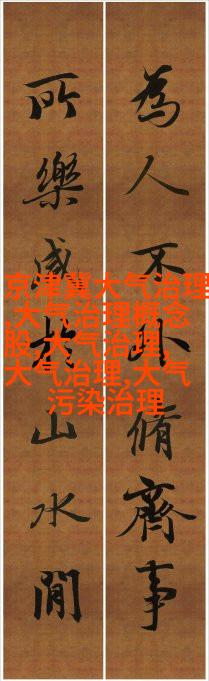 為人不外脩齊事
所樂咸於山水間
京津冀大气治理
,大气治理概念
股,大气治理,
大气治理,大气
污染治理